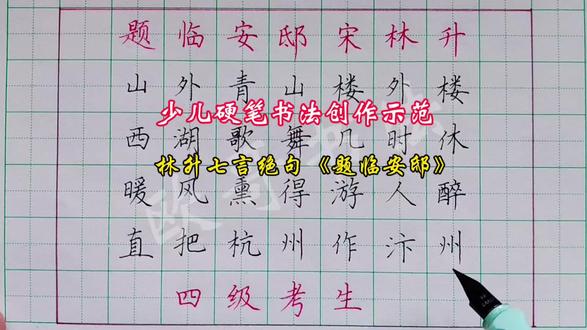 题临安邸宋林升
山外青山楼外楼
少儿硬笔书法创作示范
西湖歌舞几时休
林升七言绝句《题临安邸》
暖风熏得游人醉
直把杭州作汴州
四级考生